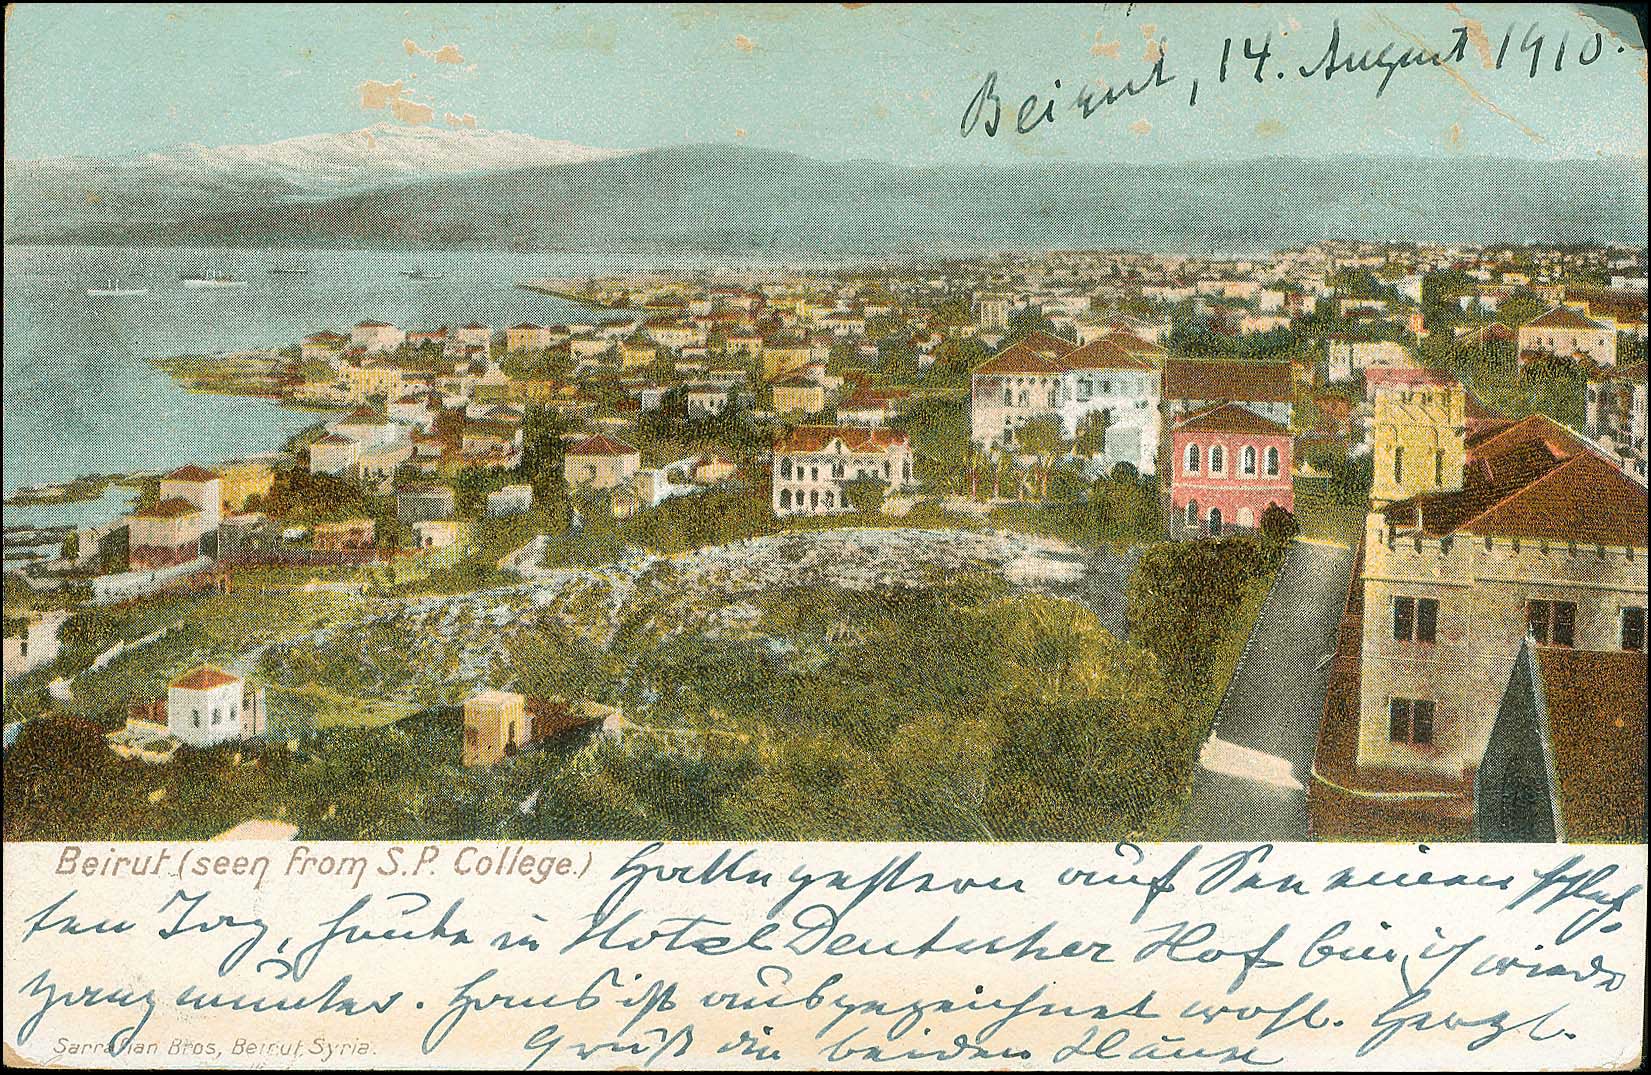 Beirut, 14. August 1910.
Beirut (seen from S.P. College.)
Hatte gestern auf See einen schlech-
ten Tag, heute in Hotel Deutscher Hof bin ich wieder
ganz munter. Hans ist ausgezeichnet wohl. Herzl.
Gruß in beiden Häuser
Sarrafian Bros, Beirut, Syria.